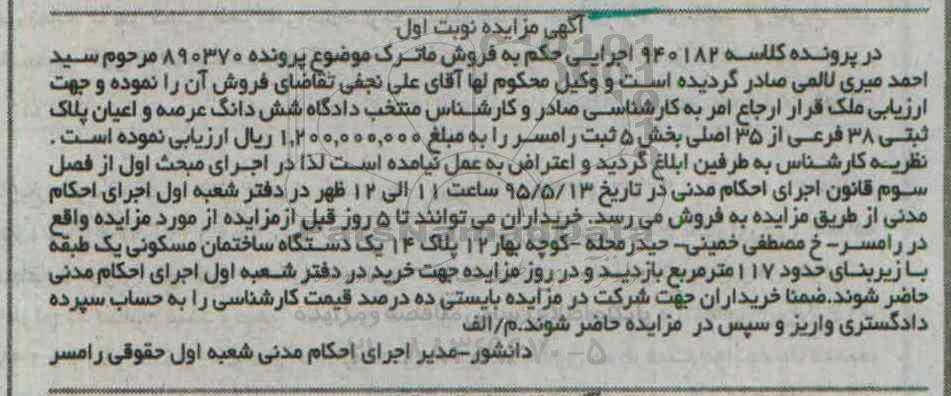 آگهی مزایده نوبت اول
در پرونده کلاسه ۹۴۰۱۸۲ اجرایی حکم به فروش ماترک موضوع پرونده ۸۹۰۳۷۰ مرحوم سید
احمد میری لالمی صادر گردیده است و وکیل محکوم لها آقای علی نجفی تقاضای فروش آن را نموده و جهت
ارزیابی ملک قرار ارجاع امر به کارشناسی صادر و کارشناس منتخب دادگاه شش دانگ عرصه و اعیان پلاک
ثبتی ۳۸ فرعی از ۳۵ اصلی بخش ۵ ثبت رامسر را به مبلغ ۱,۲۰۰,۰۰۰,۰۰۰ ریال ارزیابی نموده است .
نظریه کارشناس به طرفین ابلاغ گردید و اعتراض به عمل نیامده است لذا در اجرای مبحث اول از فصل
سوم قانون اجرای احکام مدنی در تاریخ ۹۵/۵/۱۳ ساعت ۱۱ الی ۱۲ ظهر در دفتر شعبه اول اجرای احکام
مدنی از طریق مزایده به فروش می رسد. خریداران می توانند تا ۵ روز قبل از مزایده از مورد مزایده واقع
در رامسر- خ مصطفی خمینی- حیدرمحله -کوچه بهار ۱۲ پلاک ۱۴ یک دستگاه ساختمان مسکونی یک طبقه
با زیربنای حدود ۱۱۷ مترمربع بازدید و در روز مزایده جهت خرید در دفتر شعبه اول اجرای احکام مدنی
حاضر شوند.ضمنا خریداران جهت شرکت در مزایده بایستی ده درصد قیمت کارشناسی را به حساب سپرده
دادگستری واریز و سپس در مزایده حاضر شوند.م/الف
دانشور-مدیر اجرای احکام مدنی شعبه اول حقوقی رامسر